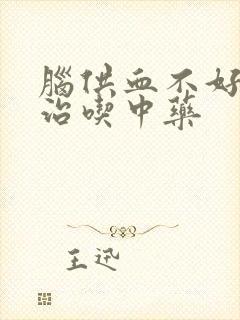 腦供血不好
治喫中藥
王迅